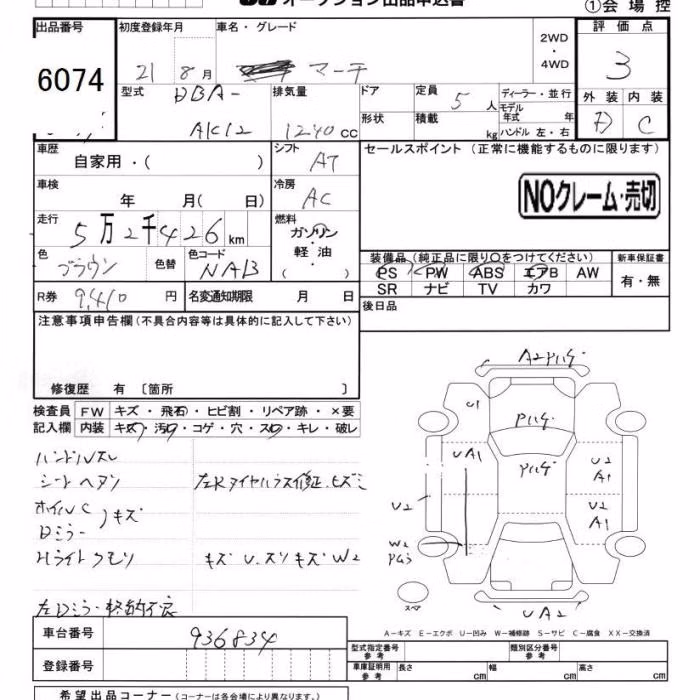 オークション出品申込書
①会場控
出品番号 初度登録年月 車名・グレード 2WD・4WD 評価点
6074 21 8月 マーチ 3
型式 DBA-AK12 排気量 1240cc ドア 形状 定員 5人 積載 kg ディーラー・並行 モデル年式 年式 ハンドル 左・右 外装 内装
D C
車歴 自家用・( ) シフト AT セールスポイント(正常に機能するものに限ります)
車検 年 月( 日) 冷房 AC NOクレーム・売切
走行 5万2千426km 燃料 ガソリン・軽油
色 ブラウン 色替 色コード NAB 装備品(純正品に限り○をつけてください) 新車保証書
PS PW ABS エアB AW 有・無
SR ナビ TV カワ
R券 9,410円 名変通知期限 月 日 後日品
注意事項申告欄(不具合内容等は具体的に記入して下さい)
修復歴 有〔箇所 〕
検査員 FW キズ・飛石・ヒビ割・リペア跡・×要
記入欄 内装 キズ・汚レ・コゲ・穴・スレ・キレ・破レ
ハンドルスレ
シートヘタリ
ホイルC
Dミラー
キズ
Hライトクモリ
キズU.スリキズW2
左Dミラー格納不良
A2ハゲ
U1
Pハゲ
UA1
Pハゲ
U2
A1
U2
U2
A1
W2
スペア
UA2
A-キズ E-エクボ U-凹み W-補修跡 S-サビ C-腐食 XX-交換済
車台番号 936834
登録番号
型式指定番号 参考 類別区分番号 参考
車庫証明用 参考 長さ cm 幅 cm 高さ cm
希望出品コーナー(コーナーは各会場により異なります。)